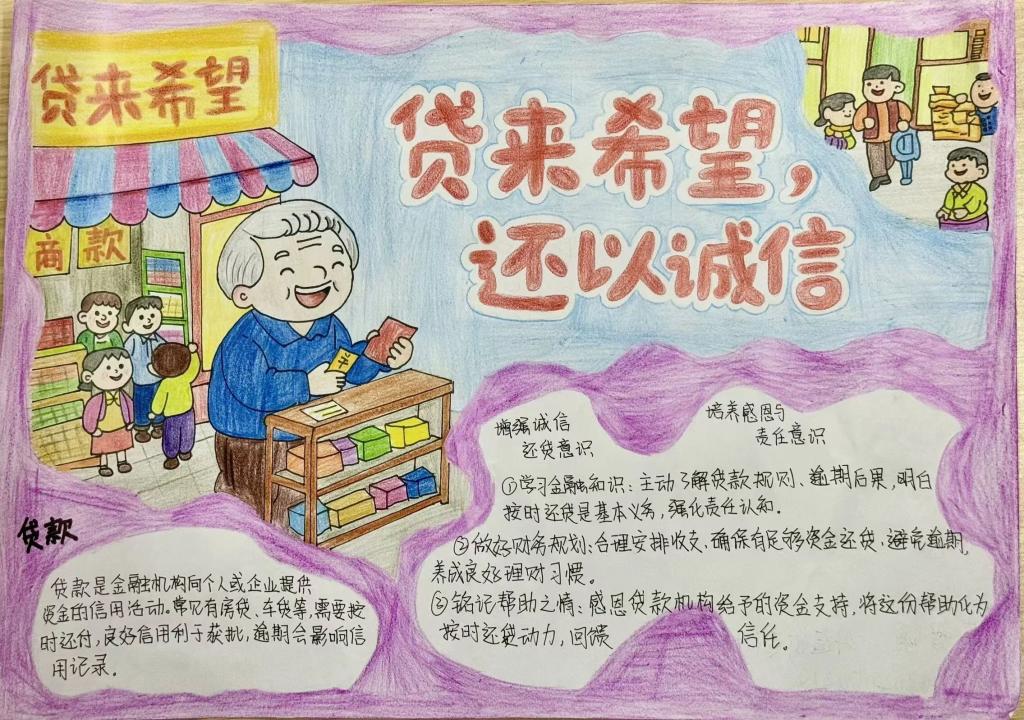 贷来希望
贷来希望，
还以诚信
商 款
增强诚信
还贷意识
培养感恩与
责任意识
①学习金融知识：主动了解贷款规则、逾期后果，明白
按时还贷是基本义务，强化责任认知。
②做好财务规划：合理安排收支，确保有足够资金还贷，避免逾期，
养成良好理财习惯。
③铭记帮助之情：感恩贷款机构给予的资金支持，将这份帮助化为
按时还贷动力，回馈 信任。
贷款
贷款是金融机构向个人或企业提供
资金的信用活动。常见有房贷、车贷等，需要按
时还付，良好信用利于获批，逾期会影响信
用记录。